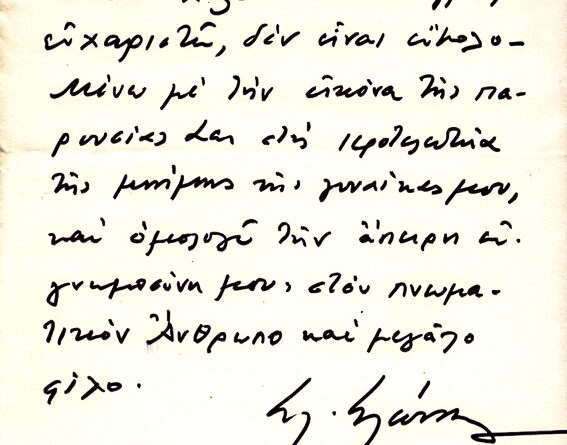 εὐχαριστῶ, δέν εἶναι εὔκολο-
Μένω μέ τήν εἰκόνα τῆς πα-
ρουσίας σας στή ἱεροτελεστία
τῆς μνήμης τῆς γυναίκας μου,
καί ὁμολογῶ τήν ἄπειρη εὐ-
γνωμοσύνη μου, στόν πνευμα-
τικόν Ἄνθρωπο καί μεγάλο
φίλο.